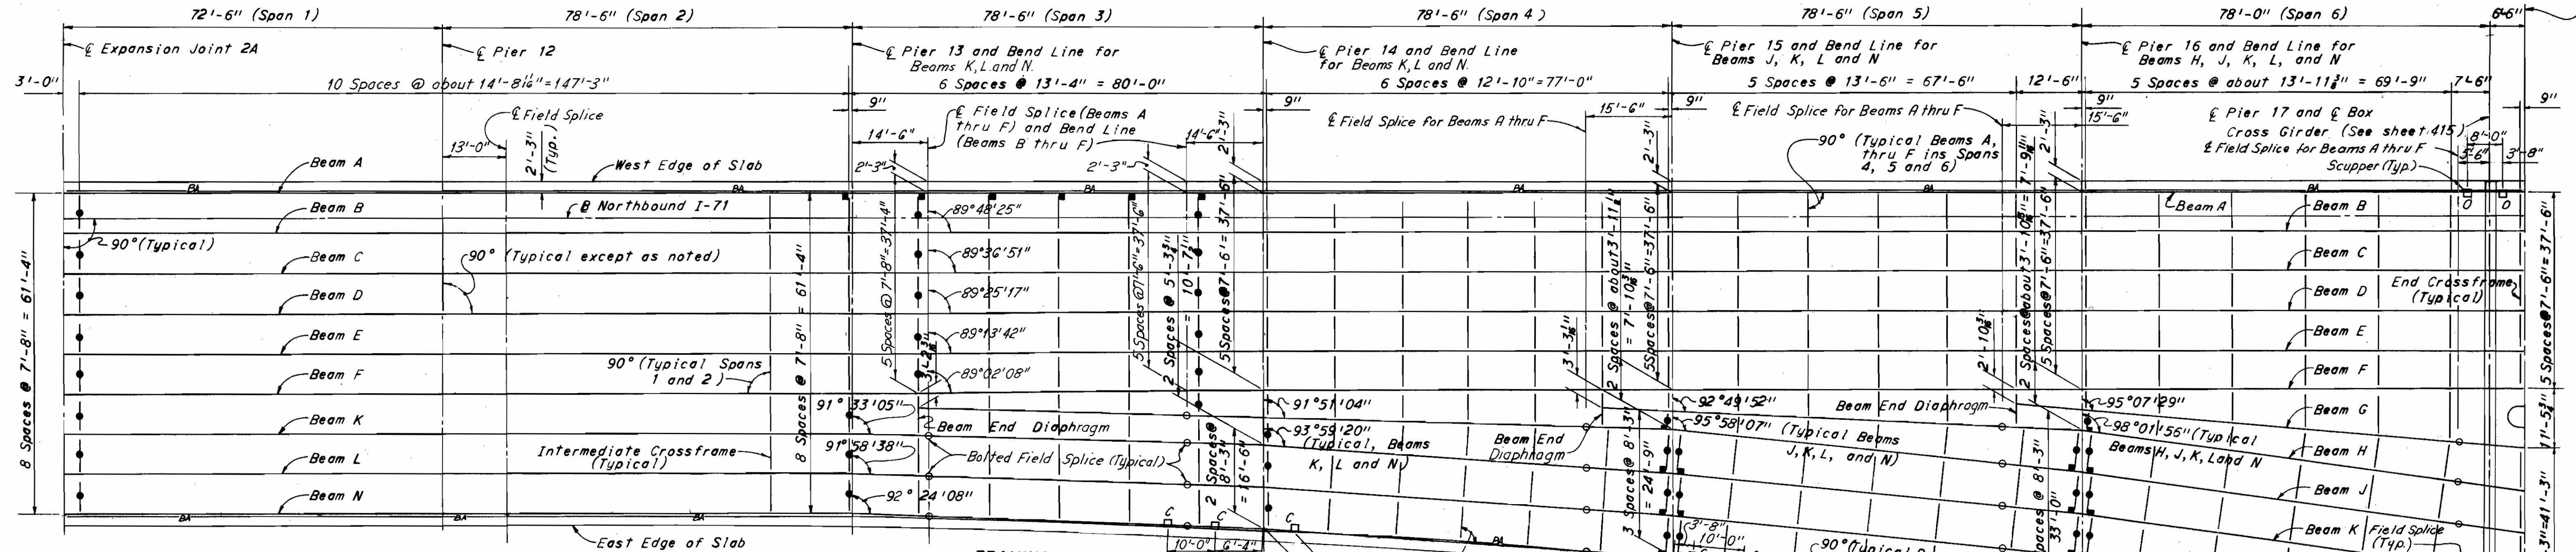 72'-6" (Span 1)
78'-6" (Span 2)
78'-6" (Span 3)
78'-6" (Span 4)
78'-6" (Span 5)
78'-0" (Span 6)
6'-6"
℄ Expansion Joint 2A
℄ Pier 12
℄ Pier 13 and Bend Line for
Beams K, L and N.
℄ Pier 14 and Bend Line
for Beams K, L and N.
℄ Pier 15 and Bend Line for
Beams J, K, L and N
℄ Pier 16 and Bend Line for
Beams H, J, K, L, and N
3'-0"
10 Spaces @ about 14'-8 11/16"=147'-3"
6 Spaces @ 13'-4" = 80'-0"
6 Spaces @ 12'-10"=77'-0"
5 Spaces @ 13'-6" = 67'-6"
12'-6"
5 Spaces @ about 13'-11 3/8" = 69'-9"
7'-6"
9"
9"
9"
9"
9"
℄ Field Splice
13'-0"
2'-3"
(Typ.)
14'-6"
℄ Field Splice (Beams A
thru F) and Bend Line
(Beams B thru F)
14'-6"
2'-3"
2'-3"
2'-3"
℄ Field Splice for Beams A thru F
15'-6"
2'-3"
℄ Field Splice for Beams A thru F
15'-6"
2'-3"
90° (Typical Beams A,
thru F ins Spans
4, 5 and 6)
℄ Pier 17 and ℄ Box
Cross Girder (See sheet 415)
8'-0"
℄ Field Splice for Beams A thru F
5'-6"
3'-8"
Scupper (Typ.)
Beam A
West Edge of Slab
BA
BA
BA
BA
BA
Beam B
B Northbound I-71
90° (Typical)
Beam C
90° (Typical except as noted)
Beam D
Beam E
Beam F
90° (Typical Spans
1 and 2)
Beam K
Beam L
Intermediate Crossframe
(Typical)
Beam N
BA
BA
BA
East Edge of Slab
8 Spaces @ 7'-8" = 61'-4"
8 Spaces @ 7'-8" = 61'-4"
5 Spaces @ 7'-8"=37'-4"
89°48'25"
89°36'51"
89°25'17"
89°13'42"
89°02'08"
91°33'05"
91°58'38"
92°24'08"
Beam End Diaphragm
Bolted Field Splice (Typical)
5 Spaces @ 7'-6"=37'-6"
2 Spaces @ 5'-3 3/4"
= 10'-7 1/2"
5 Spaces @ 7'-6" = 37'-6"
2 Spaces @
8'-3"
= 16'-6"
C
C
C
10'-0"
6'-4"
91°51'04"
93°59'20"
(Typical, Beams
K, L and N)
Beam End
Diaphragm
BA
2 Spaces @ about 3'-11
= 7'-10
5 Spaces @ 7'-6"=37'-6"
3 Spaces @ 8'-3"
= 24'-9"
92°49'52"
95°58'07" (Typical Beams
J, K, L, and N)
3'-8"
10'-0"
Beam End Diaphragm
2 Spaces @ about 3'-10
5 Spaces @ 7'-6"=37'-6"
8'-3"
33'-0"
95°07'29"
98°01'56" (Typical
Beams H, J, K, L and N
Beam A
Beam B
Beam C
Beam D
End Crossframe
(Typical)
Beam E
Beam F
Beam G
Beam H
Beam J
Beam K
Field Splice
(Typ.)
5 Spaces @ 7'-6"= 37'-6"
=41'-3"